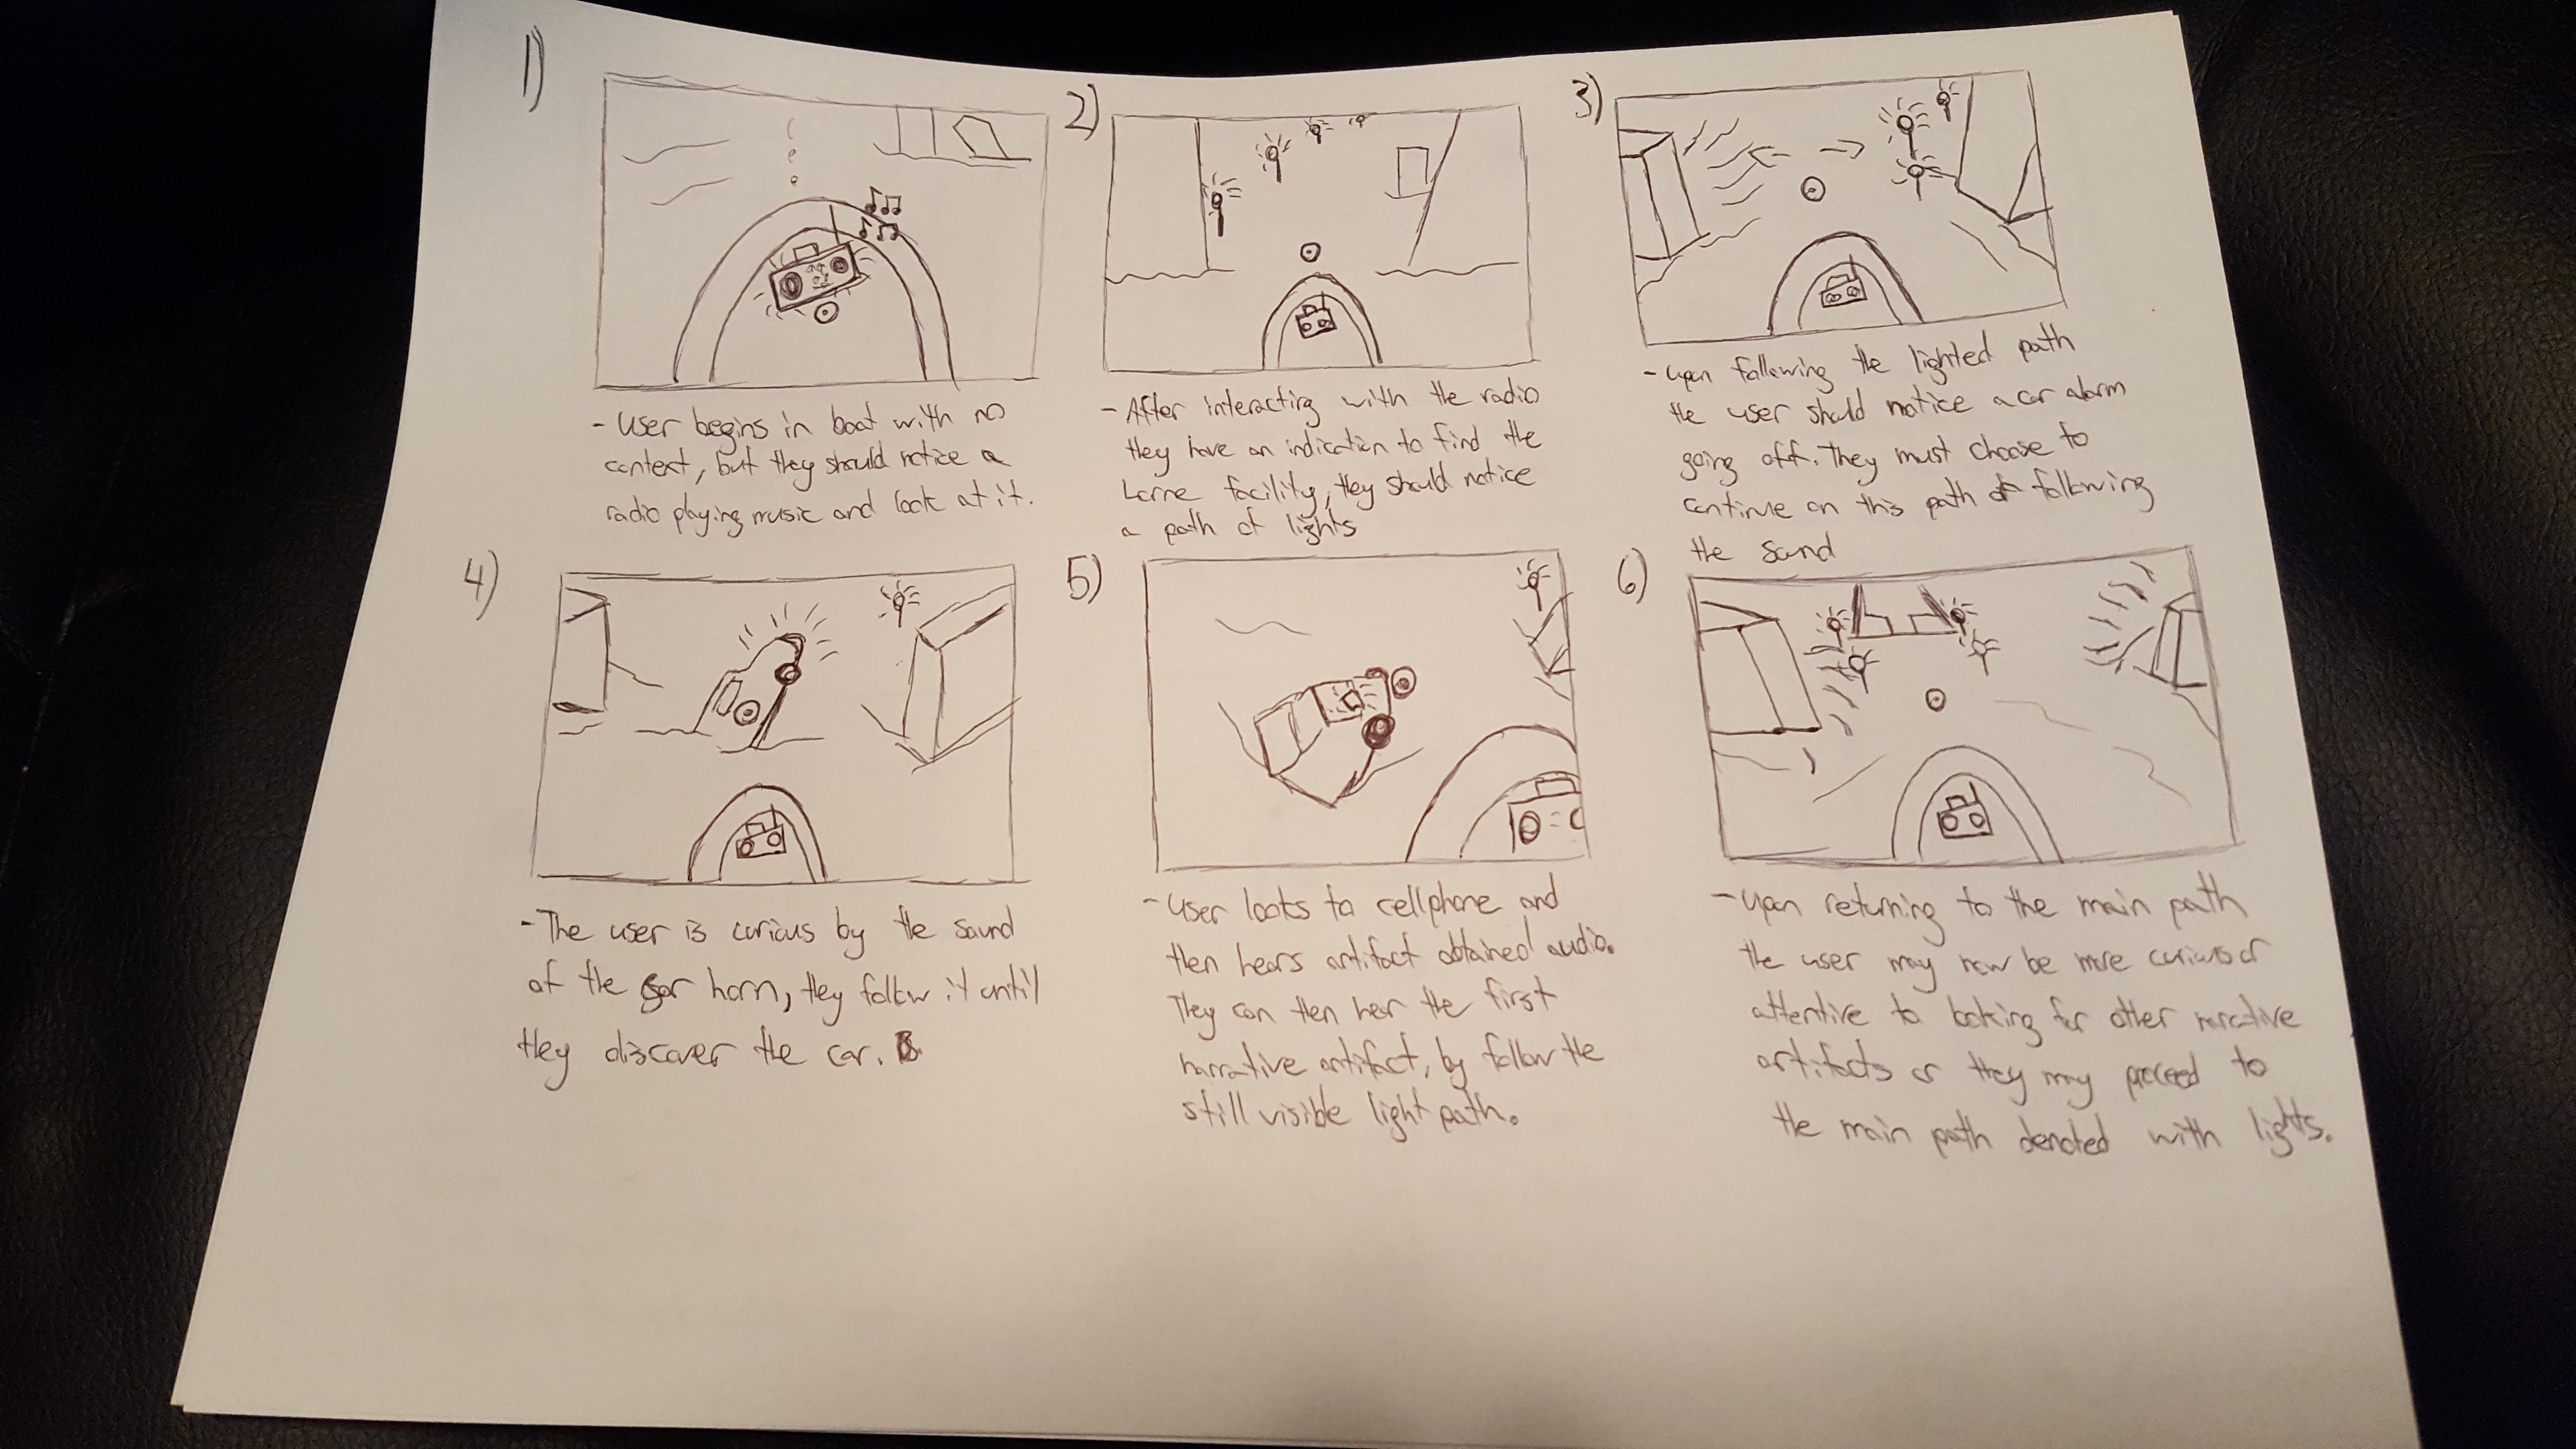 1)
- User begins in boat with no
context, but they should notice a
radio playing music and look at it.
2)
- After interacting with the radio
they have an indication to find the
Lorne facility, they should notice
a path of lights
3)
- upon following the lighted path
the user should notice a car alarm
going off. They must choose to
continue on this path or following
the sound
4)
- The user is curious by the sound
of the car horn, they follow it until
they discover the car.
5)
- User looks to cellphone and
then hears artifact obtained audio.
They can then hear the first
narrative artifact, by follow the
still visible light path.
6)
- Upon returning to the main path
the user may now be more curious or
attentive to looking for other narrative
artifacts or they may proceed to
the main path denoted with lights.